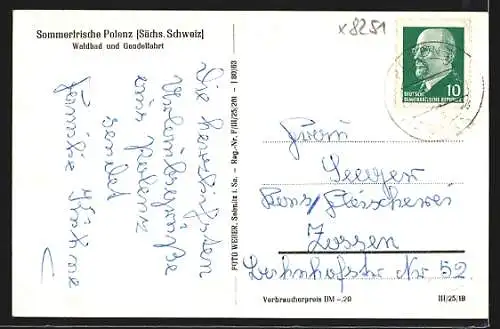 Sommerfrische Polenz (Sächs. Schweiz)
Waldbad und Gondelfahrt
x8251
DEUTSCHE
DEMOKRATISCHE REPUBLIK
10
Die herzlichsten
Urlaubsgrüße
aus Polenz
sendet
Familie
FOTO WEBER, Sebnitz i. Sa. – Reg.-Nr. F/III/25/261 - I 80/63
Herrn
Fleischerei
Zossen
Bahnhofstr Nr 52
Verbraucherpreis DM -.20
III/25/18